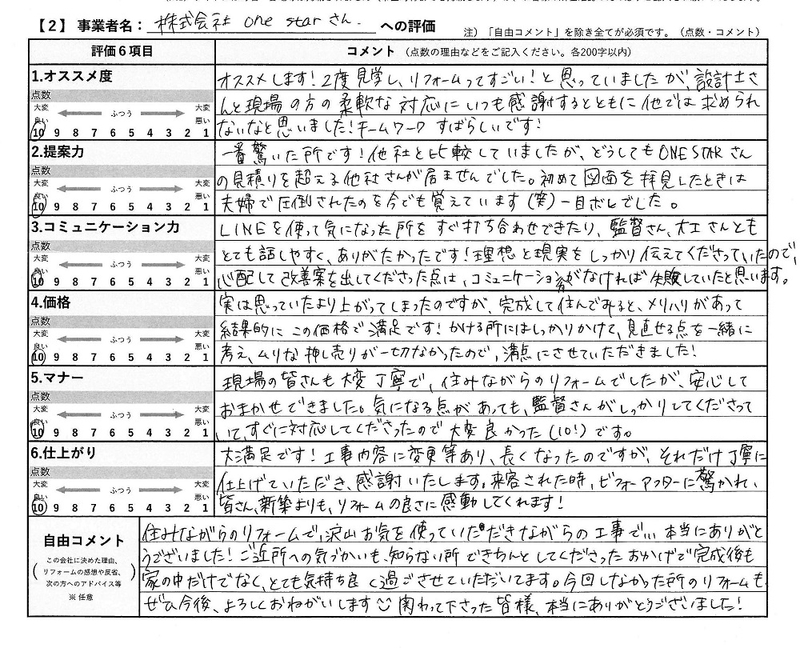 【2】事業者名: 株式会社 one starさん. への評価
注)「自由コメント」を除き全てが必須です。(点数・コメント)
評価6項目
コメント (点数の理由などをご記入ください。各200字以内)
1.オススメ度
点数
大変良い ふつう 大変悪い
10 9 8 7 6 5 4 3 2 1
オススメします!2度見学し、リフォームってすごい!と思っていましたが、設計士さ
んと現場の方の柔軟な対応にいつも感謝するとともに他では求められ
ないなと思いました!チームワークすばらしいです!
2.提案力
点数
大変良い ふつう 大変悪い
10 9 8 7 6 5 4 3 2 1
一番驚いた所です!他社と比較していましたが、どうしてもONE STARさん
の見積りを超える他社さんが居ませんでした。初めて図面を拝見したときは
夫婦で圧倒されたのを今でも覚えています(笑)一目ボレでした。
3.コミュニケーション力
点数
大変良い ふつう 大変悪い
10 9 8 7 6 5 4 3 2 1
LINEを使って気になった所をすぐ打ち合わせできたり、監督さん、大工さんとも
とても話しやすく、ありがたかったです!理想と現実をしっかり伝えてくださっていたので、
心配して改善案を出してくださった点は、コミュニケーション力がなければ失敗していたと思います。
4.価格
点数
大変良い ふつう 大変悪い
10 9 8 7 6 5 4 3 2 1
実は思っていたより上がってしまったのですが、完成して住んでみると、メリハリがあって
結果的にこの価格で満足です!かける所にはしっかりかけて、見直せる点を一緒に
考え、ムリな押し売りが一切なかったので、満点にさせていただきました!
5.マナー
点数
大変良い ふつう 大変悪い
10 9 8 7 6 5 4 3 2 1
現場の皆さんも大変丁寧で、住みながらのリフォームでしたが、安心して
おまかせできました。気になる点があっても、監督さんがしっかりしてくださって
いて、すぐに対応してくださったので大変良かった(10!)です。
6.仕上がり
点数
大変良い ふつう 大変悪い
10 9 8 7 6 5 4 3 2 1
大満足です!工事内容に変更等あり、長くなったのですが、それだけ丁寧に
仕上げていただき、感謝いたします。来客された時、ビフォーアフターに驚かれ、
皆さん、新築よりも、リフォームの良さに感動してくれます!
自由コメント
(この会社に決めた理由、
リフォームの感想や反省、
次の方へのアドバイス等)
※ 任意
住みながらのリフォームで、沢山お気を使っていただきながらの工事で… 本当にありがと
うございました!ご近所への気づかいも、知らない所できちんとしてくださったおかげで完成後も
家の中だけでなく、とても気持ち良く過ごさせていただいてます。今回しなかった所のリフォームも、
ぜひ今後、よろしくおねがいします 関わって下さった皆様、本当にありがとうございました!